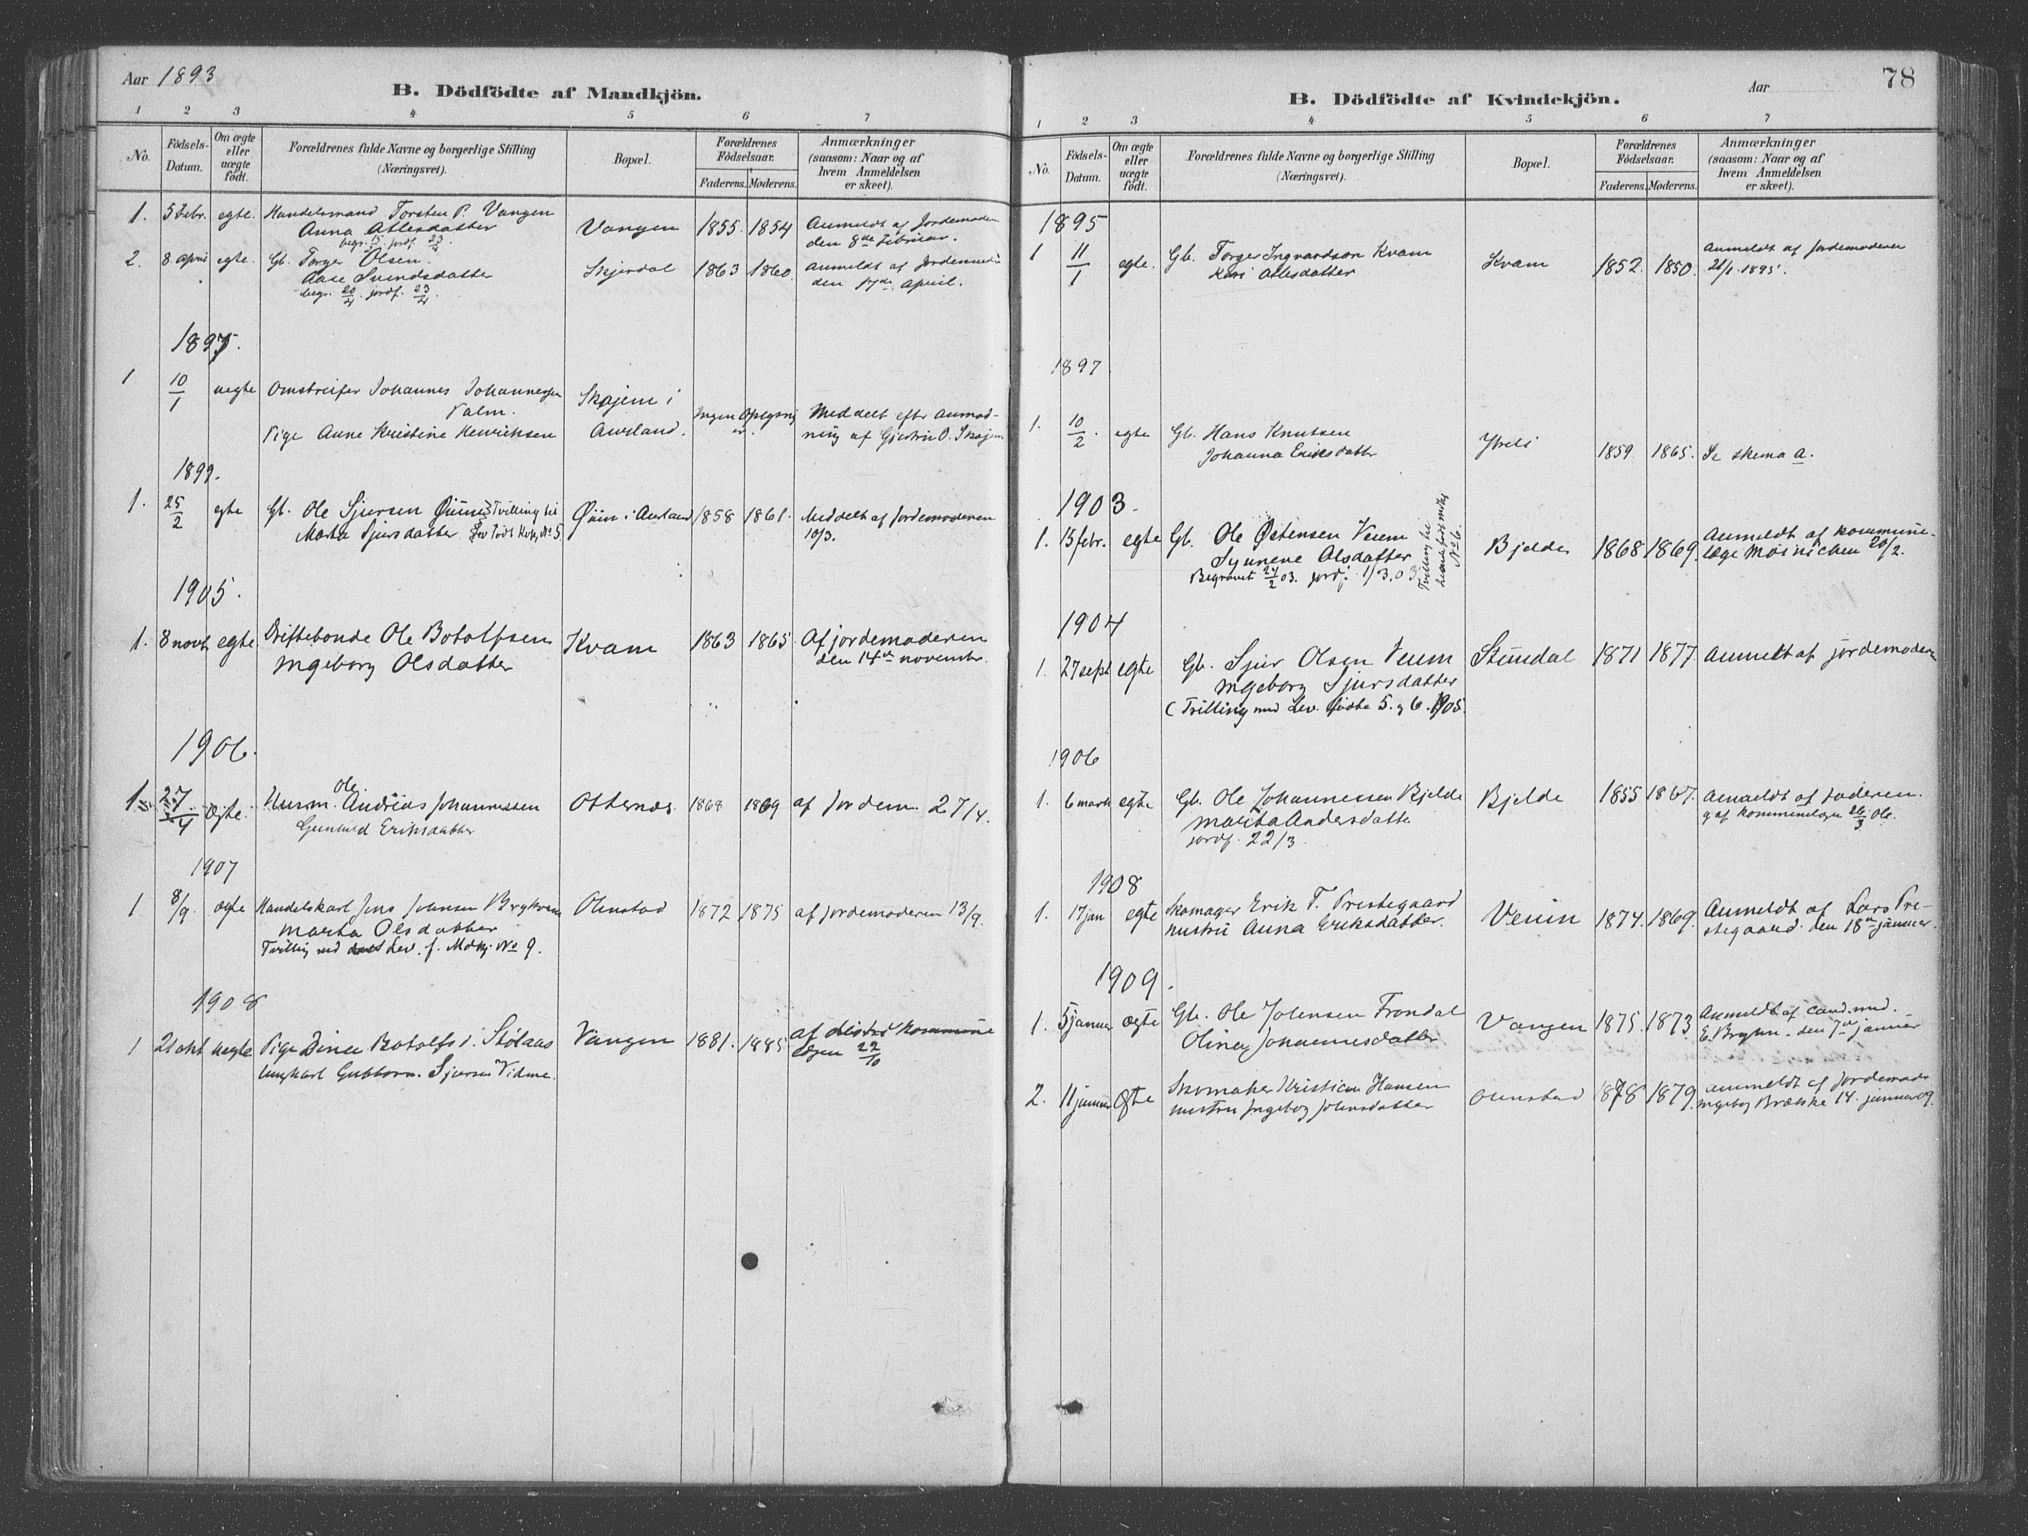 Aar 1893
B. Dödfödte af Mandkjön.
1 2 3 4 5 6 7
No.
Födsels-Datum.
Om ægte eller uægte födt.
Forældrenes fulde Navne og borgerlige Stilling (Næringsvei).
Bopæl.
Forældrenes Födselsaar.
Faderens. Moderens.
Anmærkninger (saasom: Naar og af hvem Anmeldelsen er skeet).
1. 5 Febr. egte. Handelsmand Torsten P. Vangen Vangen 1855. 1854 Anmeldt af Jordemoderen
Anna Atlesdatter den 8de Februar.
begr. jordf.
2. 8 April egte. Gb. Torger Olsen. Skjerdal 1863 1860. Anmeldt af Jordemoderen
Aase Svendsdatter den 17de April.
begr. 20/4 jordf. 23/4
1895.
1 10/1 uegte Omstreifer Johannes Johannesen Skajem i Ingen Oplysning Meddelt efter Anmod-
Valm. Aurland. ning af Gjestrii O. Skajem
Pige Anne Kristine Henriksen
1899.
1. 25/2 egte Gb. Ole Sjursen Øium Tvilling til Øiin i Aurland 1858 1861. Meddelt af Jordemoderen
Marta Sjursdatter Lev. født Kvk. No 5 10/3.
1905.
1. 8 novbr egte Driftebonde Ole Botolfsen Kvam 1863 1865 Af jordemoderen
Ingeborg Olsdatter den 14de november.
1906.
1. 27/4 Ægte Husm. Ole Andreas Johannessen Otternes 1868 1869 af Jordem. 27/4.
Gunhild Eriksdatter
1907
1 8/9. ægte Handelskarl Jens Johnsen Brykvam Olinstad 1872 1875 af Jordemoderen 13/9.
Marta Olsdatter
Tvilling med Lev. f. Mdkj. No 9.
1908
1 21 okt uegte Pige Dina Botolfs i Stølaas Vangen 1881. 1885 af kommune
Ungkarl Guttorm Sjursen Vidme. lægen 22/10
78
B. Dödfödte af Kvindekjön.
Aar
1 2 3 4 5 6 7
No.
Födsels-Datum.
Om ægte eller uægte födt.
Forældrenes fulde Navne og borgerlige Stilling (Næringsvei).
Bopæl.
Forældrenes Födselsaar.
Faderens. Moderens.
Anmærkninger (saasom: Naar og af hvem Anmeldelsen er skeet).
1895
1 11/1 egte. Gb. Torger Ingvardson Kvam Kvam 1852. 1850. Anmeldt af Jordemoderen
Kari Atlesdatter 21/1 1895.
1897
1. 10/2. egte Gb. Hans Knutsen 1859 1865. Se skema a.
Johanna Eriksdatter
1903.
1. 15 febr. egte Gb. Ole Østensen Veum Bjelde 1868 1869 Anmeldt af kommune-
Synneve Olsdatter læge Møinichen 20/2.
Begravet 24/2 03. jordf. 1/3.03
Tvilling til levendefødt mkj No 6.
1904
1. 27 sept egte Gb. Sjur Olsen Veum Stundal 1871 1877 Anmeldt af jordemoderen
Ingeborg Sjursdatter
(Trilling med Lev. fødte 5. og 6. 1905.
1906
1. 6 marts egte Gb. Ole Johannessen Bjelde Bjelde 1855 1867. Anmeldt af faderen.
Marita Andersdatter og af kommunelægen 26/3 06.
jordf. 22/3
1908
1. 17 jan egte Skomager Erik T. Prestegaard Veum 1874. 1869. Anmeldt af Lars Pre-
hustru Anna Eriksdatter. stegaard. den 18de januar.
1909.
1. 5 januar ægte Gb. Ole Johnsen Frondal Vangen 1875. 1873 Anmeldt af cand. med.
Olina Johannesdatter E. Bryhn. den 7de januar
2. 11 januar Ægte Skomaker Kristian Hansen Olinstad 1878 1879 anmeldt af Jordemoder
hustru Ingeborg Johnsdatter Ingeborg Brætske 14. januar 09.